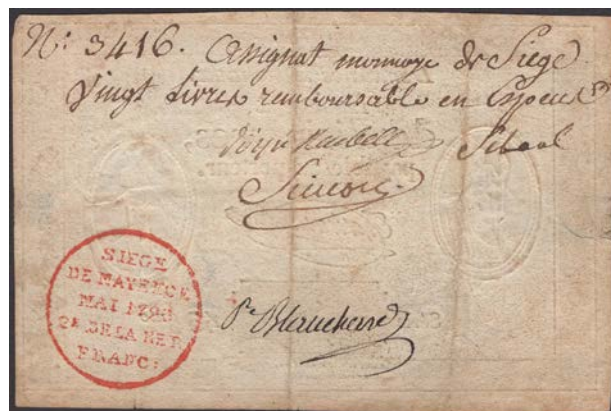 N: 3416. Assignat monnoye de Siege
Vingt Livres remboursable en Especes
Simon
SIEGE
DE MAYENCE
MAI 1793
2e DE LA REP
FRANC:
Pr Blanchard